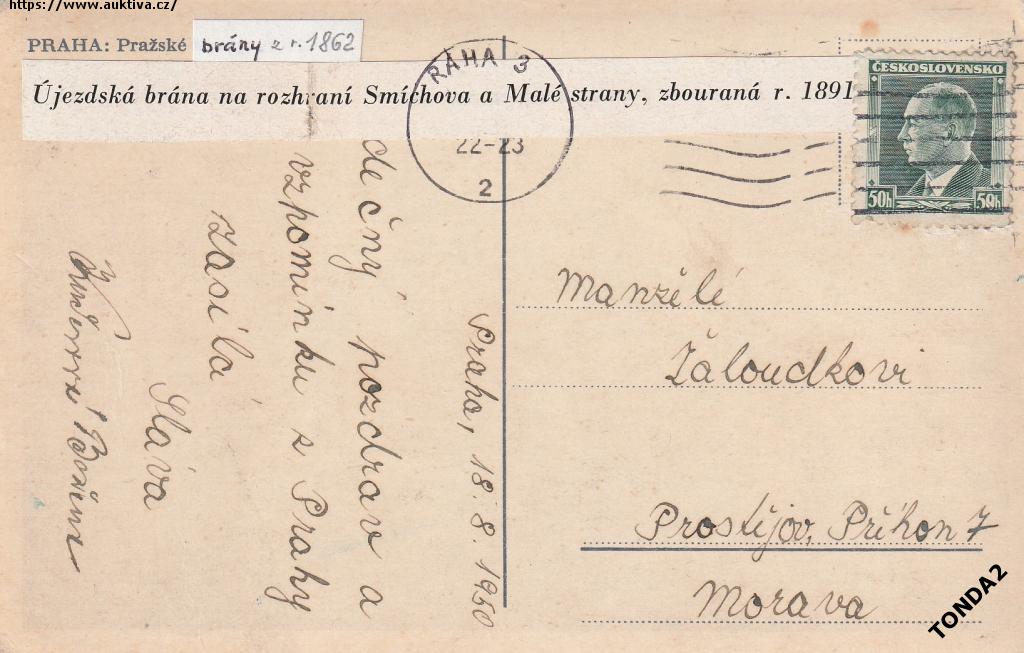 https://www.auktiva.cz/
PRAHA: Pražské brány z r. 1862
Újezdská brána na rozhraní Smíchova a Malé strany, zbouraná r. 1891
RAHA 3
22-23
2
ČESKOSLOVENSKO
50h 50h
Praha, 18. 8. 1950
dečný pozdrav a
vzpomínku z Prahy
zasílá
Sláva
Manzělé
Žáloudkovi
Prostějov, Příhon 7
Morava
TONDA2